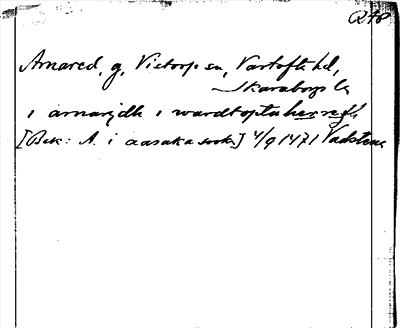 Arnared, g, Vistorp sn, Vartofta hd,
Skaraborgs l.
i arnarydh i wardtopta herredh
[Bek: A. i aasaka sokn] 4/9 1471 Vadstena